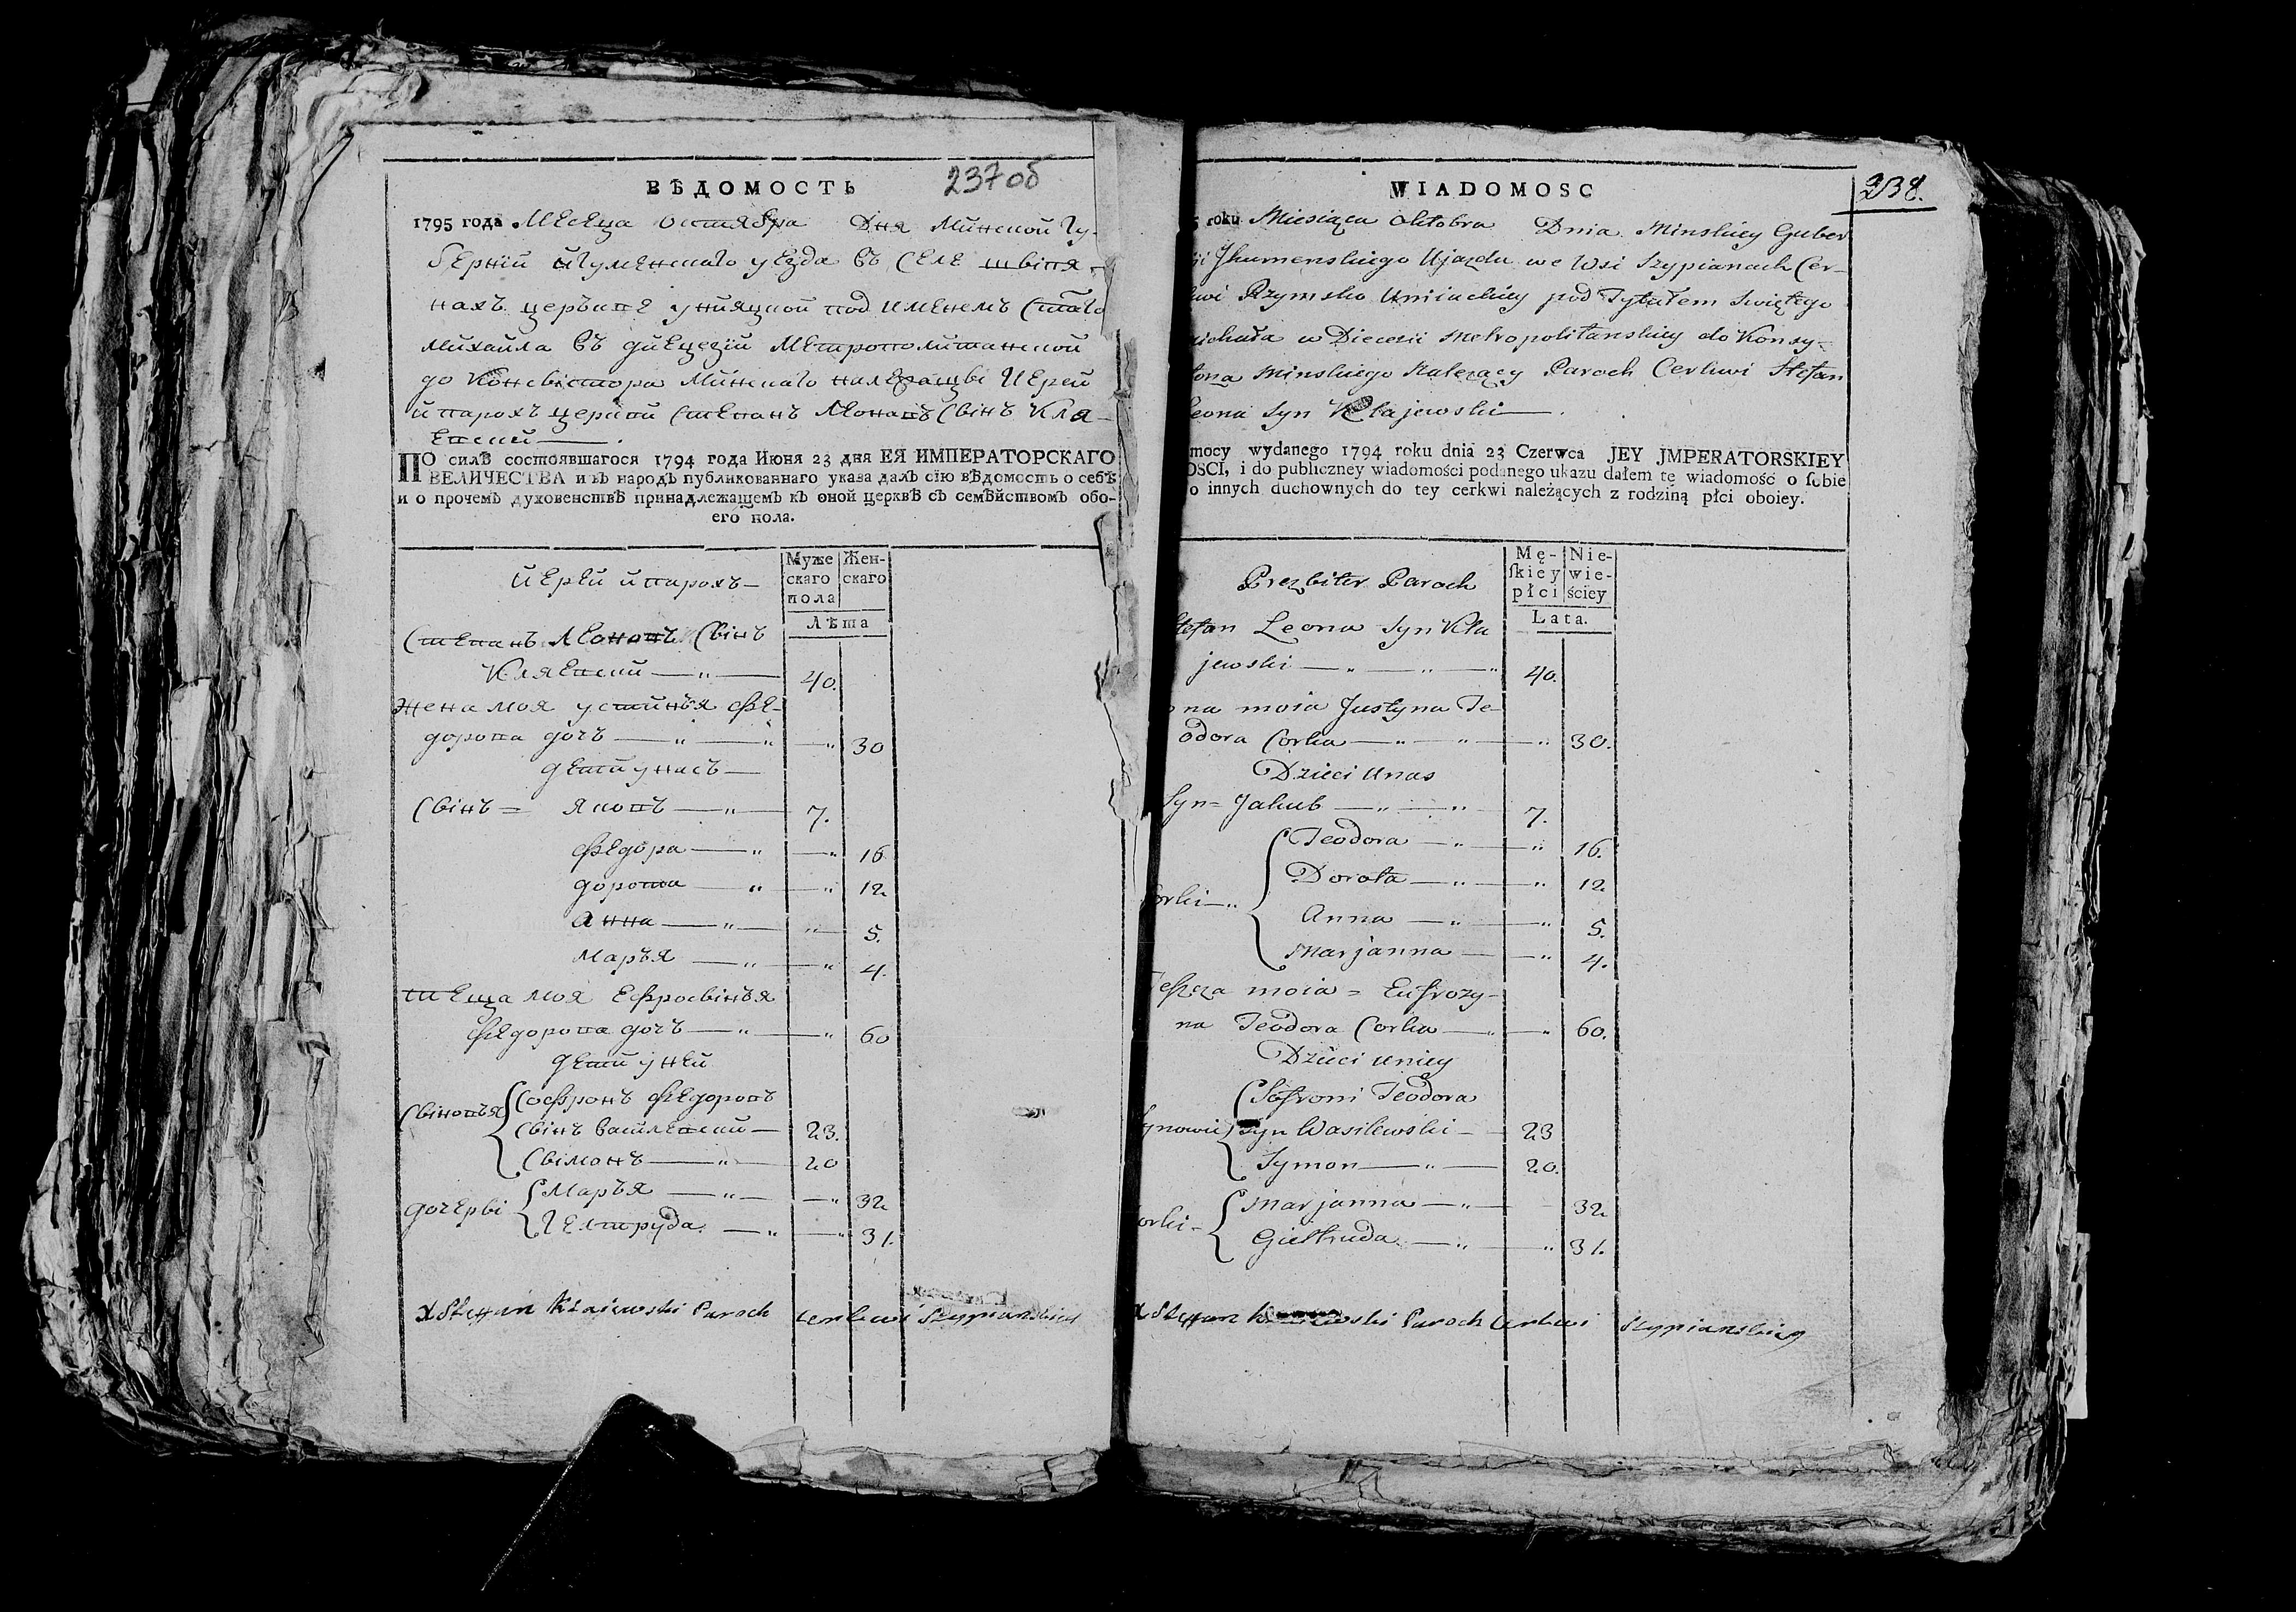 ВѢДОМОСТЬ 237об
1795 года Месеца Октября Дня Минской Гу-
берніи Игуменскаго уезда въ селе Швіпя-
нахъ церъкве унияцкой под именемъ Стаго
Михайла въ диецезіи Метрополитанской
до Консвістора Минскаго належащві Иерей
и парохъ церкви Степанъ Леоновъ Свінъ Кля-
евскій
ПО силѣ состоявшагося 1794 года Июня 23 дня ЕЯ ИМПЕРАТОРСКАГО
ВЕЛИЧЕСТВА и въ народъ публикованнаго указа далъ сію вѣдомость о себѣ
и о прочемъ духовенствѣ принадлежащемъ къ оной церквѣ съ семѣйствомъ обо-
его пола.
Муже Жен-
скаго скаго
пола
Лѣта
Иерей и парохъ
Степанъ Леоновъ Свінъ
Кляевскій 40.
Жена моя устинъя Фе-
дорова дочъ 30
дети унасъ
Свінъ = Яковъ 7.
Федора 16
дорота 12
Анна 5.
Маръя 4.
теща моя Ефросвінъя
Федорова дочъ 60
дети уней
Свіновъя Софронъ Федоровъ
Свінъ Василевскій 23.
Свімонъ 20
дочерві Маръя 32
Гелтруда 31.
X Steffan Kłaiewski Paroch Cerkwi Szypianskiey
WIADOMOSC 238.
5 roku Miesiąca Oktobra Dnia Minskiey Guber
ii Jhumenskiego Ujazdu we Wsi Szypianach Cer-
kwi Rzymsko Uniackiey pod Tytułem Swiętego
Michała w Diecezii Metropolitanskiey do Konsy-
storza Minskiego Należący Paroch Cerkwi Stefan
Leona Syn Kłajewski
mocy wydanego 1794 roku dnia 23 Czerwca JEY JMPERATORSKIEY
OSCI, i do publiczney wiadomości podanego ukazu dałem tę wiadomość o sobie
o innych duchownych do tey cerkwi należących z rodziną płci oboiey.
Mę- Nie-
skiey wie-
płci ściey
Lata.
Prezbiter Paroch
Stefan Leona Syn Kła
jewski 40.
ona moia Justyna Te-
odora Corka 30.
Dzieci unas
Syn = Jakub 7.
Teodora 16.
Dorota 12
Corki Anna 5.
Marjanna 4.
Teszcza moia = Eufrozy-
na Teodora Corka 60.
Dzieci uniey
Sofroni Teodora
Synowie Syn Wasilewski 23
Symon 20.
Corki Marjanna 32
Gieltruda 31.
X Steffan Kłaiewski Paroch Cerkwi Szypianskiey